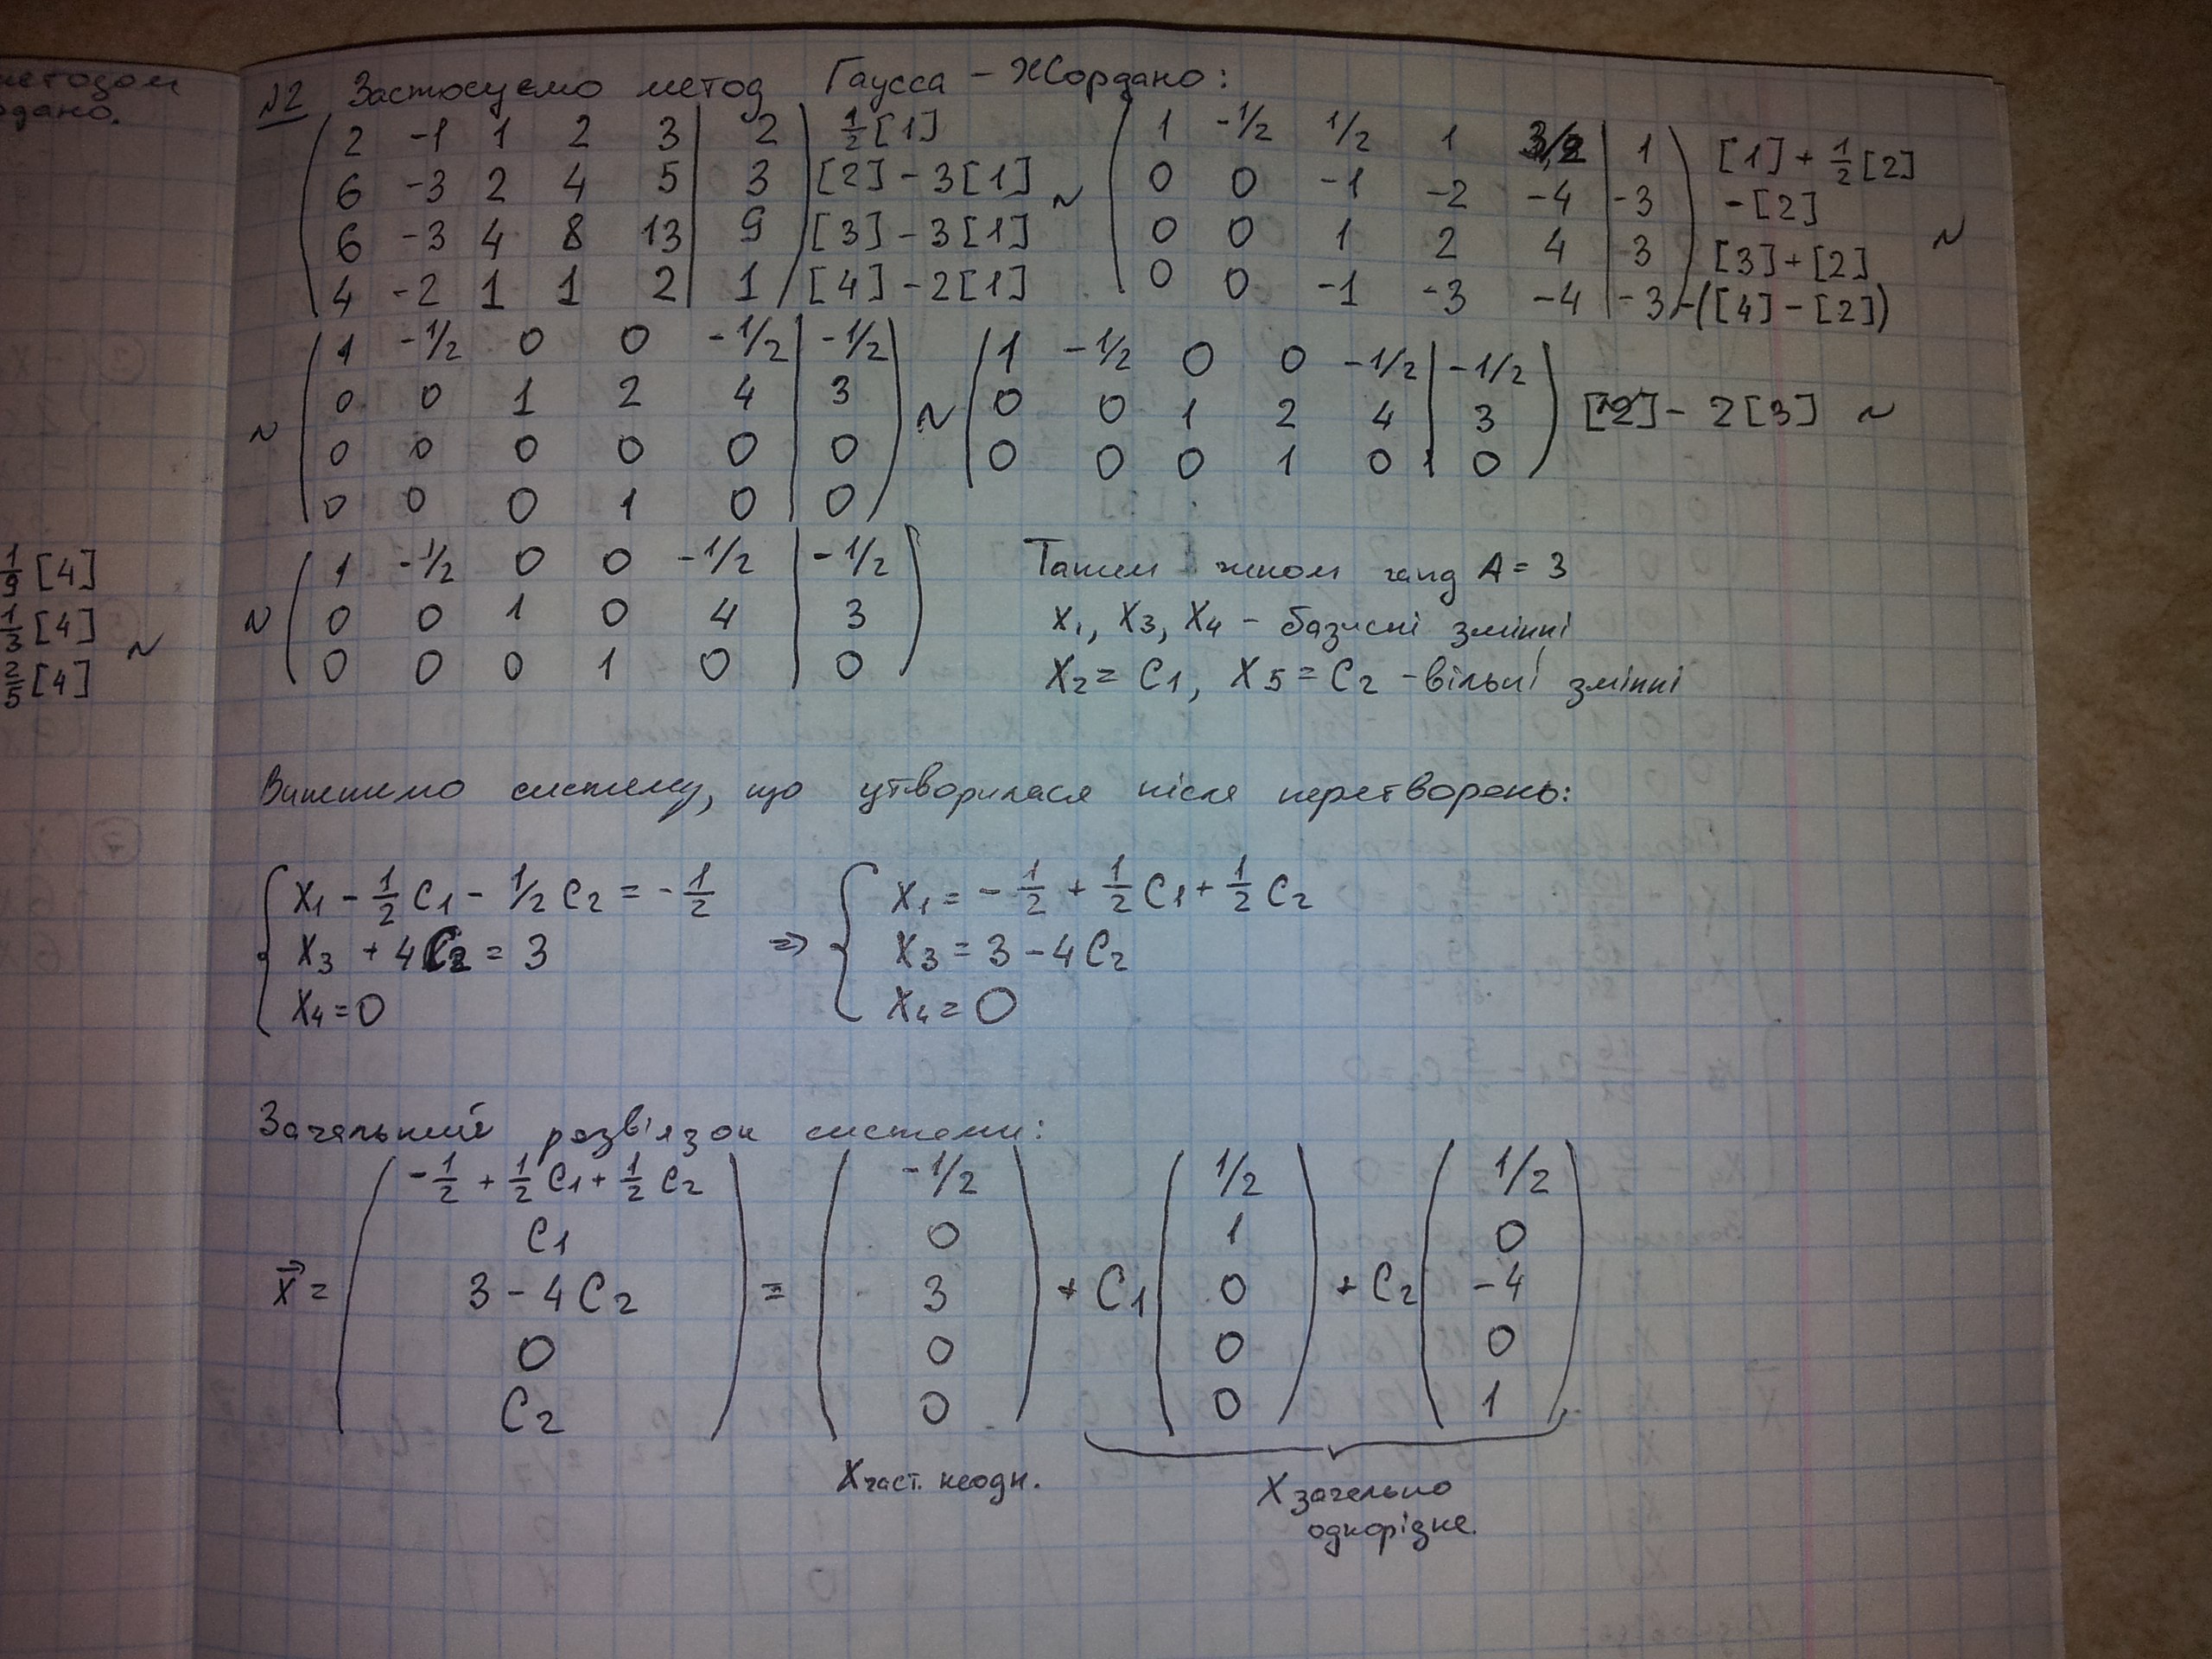 методом
рдано.
1/9 [4]
1/3 [4] ~
2/5 [4]
№2 Застосуємо метод Гаусса - Жордано:
( 2 -1 1 2 3 | 2 ) 1/2 [1]
( 6 -3 2 4 5 | 3 ) [2] - 3[1]
( 6 -3 4 8 13 | 9 ) [3] - 3[1]
( 4 -2 1 1 2 | 1 ) [4] - 2[1]
~ ( 1 -1/2 1/2 1 3/2 | 1 ) [1] + 1/2 [2]
( 0 0 -1 -2 -4 | -3 ) -[2]
( 0 0 1 2 4 | 3 ) [3] + [2] ~
( 0 0 -1 -3 -4 | -3 ) -([4] - [2])
~ ( 1 -1/2 0 0 -1/2 | -1/2 )
( 0 0 1 2 4 | 3 )
( 0 0 0 0 0 | 0 )
( 0 0 0 1 0 | 0 )
~ ( 1 -1/2 0 0 -1/2 | -1/2 )
( 0 0 1 2 4 | 3 ) [2] - 2[3] ~
( 0 0 0 1 0 | 0 )
~ ( 1 -1/2 0 0 -1/2 | -1/2 )
( 0 0 1 0 4 | 3 )
( 0 0 0 1 0 | 0 )
Таким чином ранг A = 3
x1, x3, x4 - базисні змінні
x2 = C1, x5 = C2 - вільні змінні
Випишемо систему, що утворилася після перетворень:
{ x1 - 1/2 C1 - 1/2 C2 = - 1/2
x3 + 4C2 = 3
x4 = 0
=> { x1 = - 1/2 + 1/2 C1 + 1/2 C2
x3 = 3 - 4C2
x4 = 0
Загальний розв'язок системи:
x = ( - 1/2 + 1/2 C1 + 1/2 C2 ) = ( -1/2 ) + C1 ( 1/2 ) + C2 ( 1/2 )
( C1 ) ( 0 ) ( 1 ) ( 0 )
( 3 - 4C2 ) ( 3 ) ( 0 ) ( -4 )
( 0 ) ( 0 ) ( 0 ) ( 0 )
( C2 ) ( 0 ) ( 0 ) ( 1 )
X част. неодн.
X загально
однорідне.